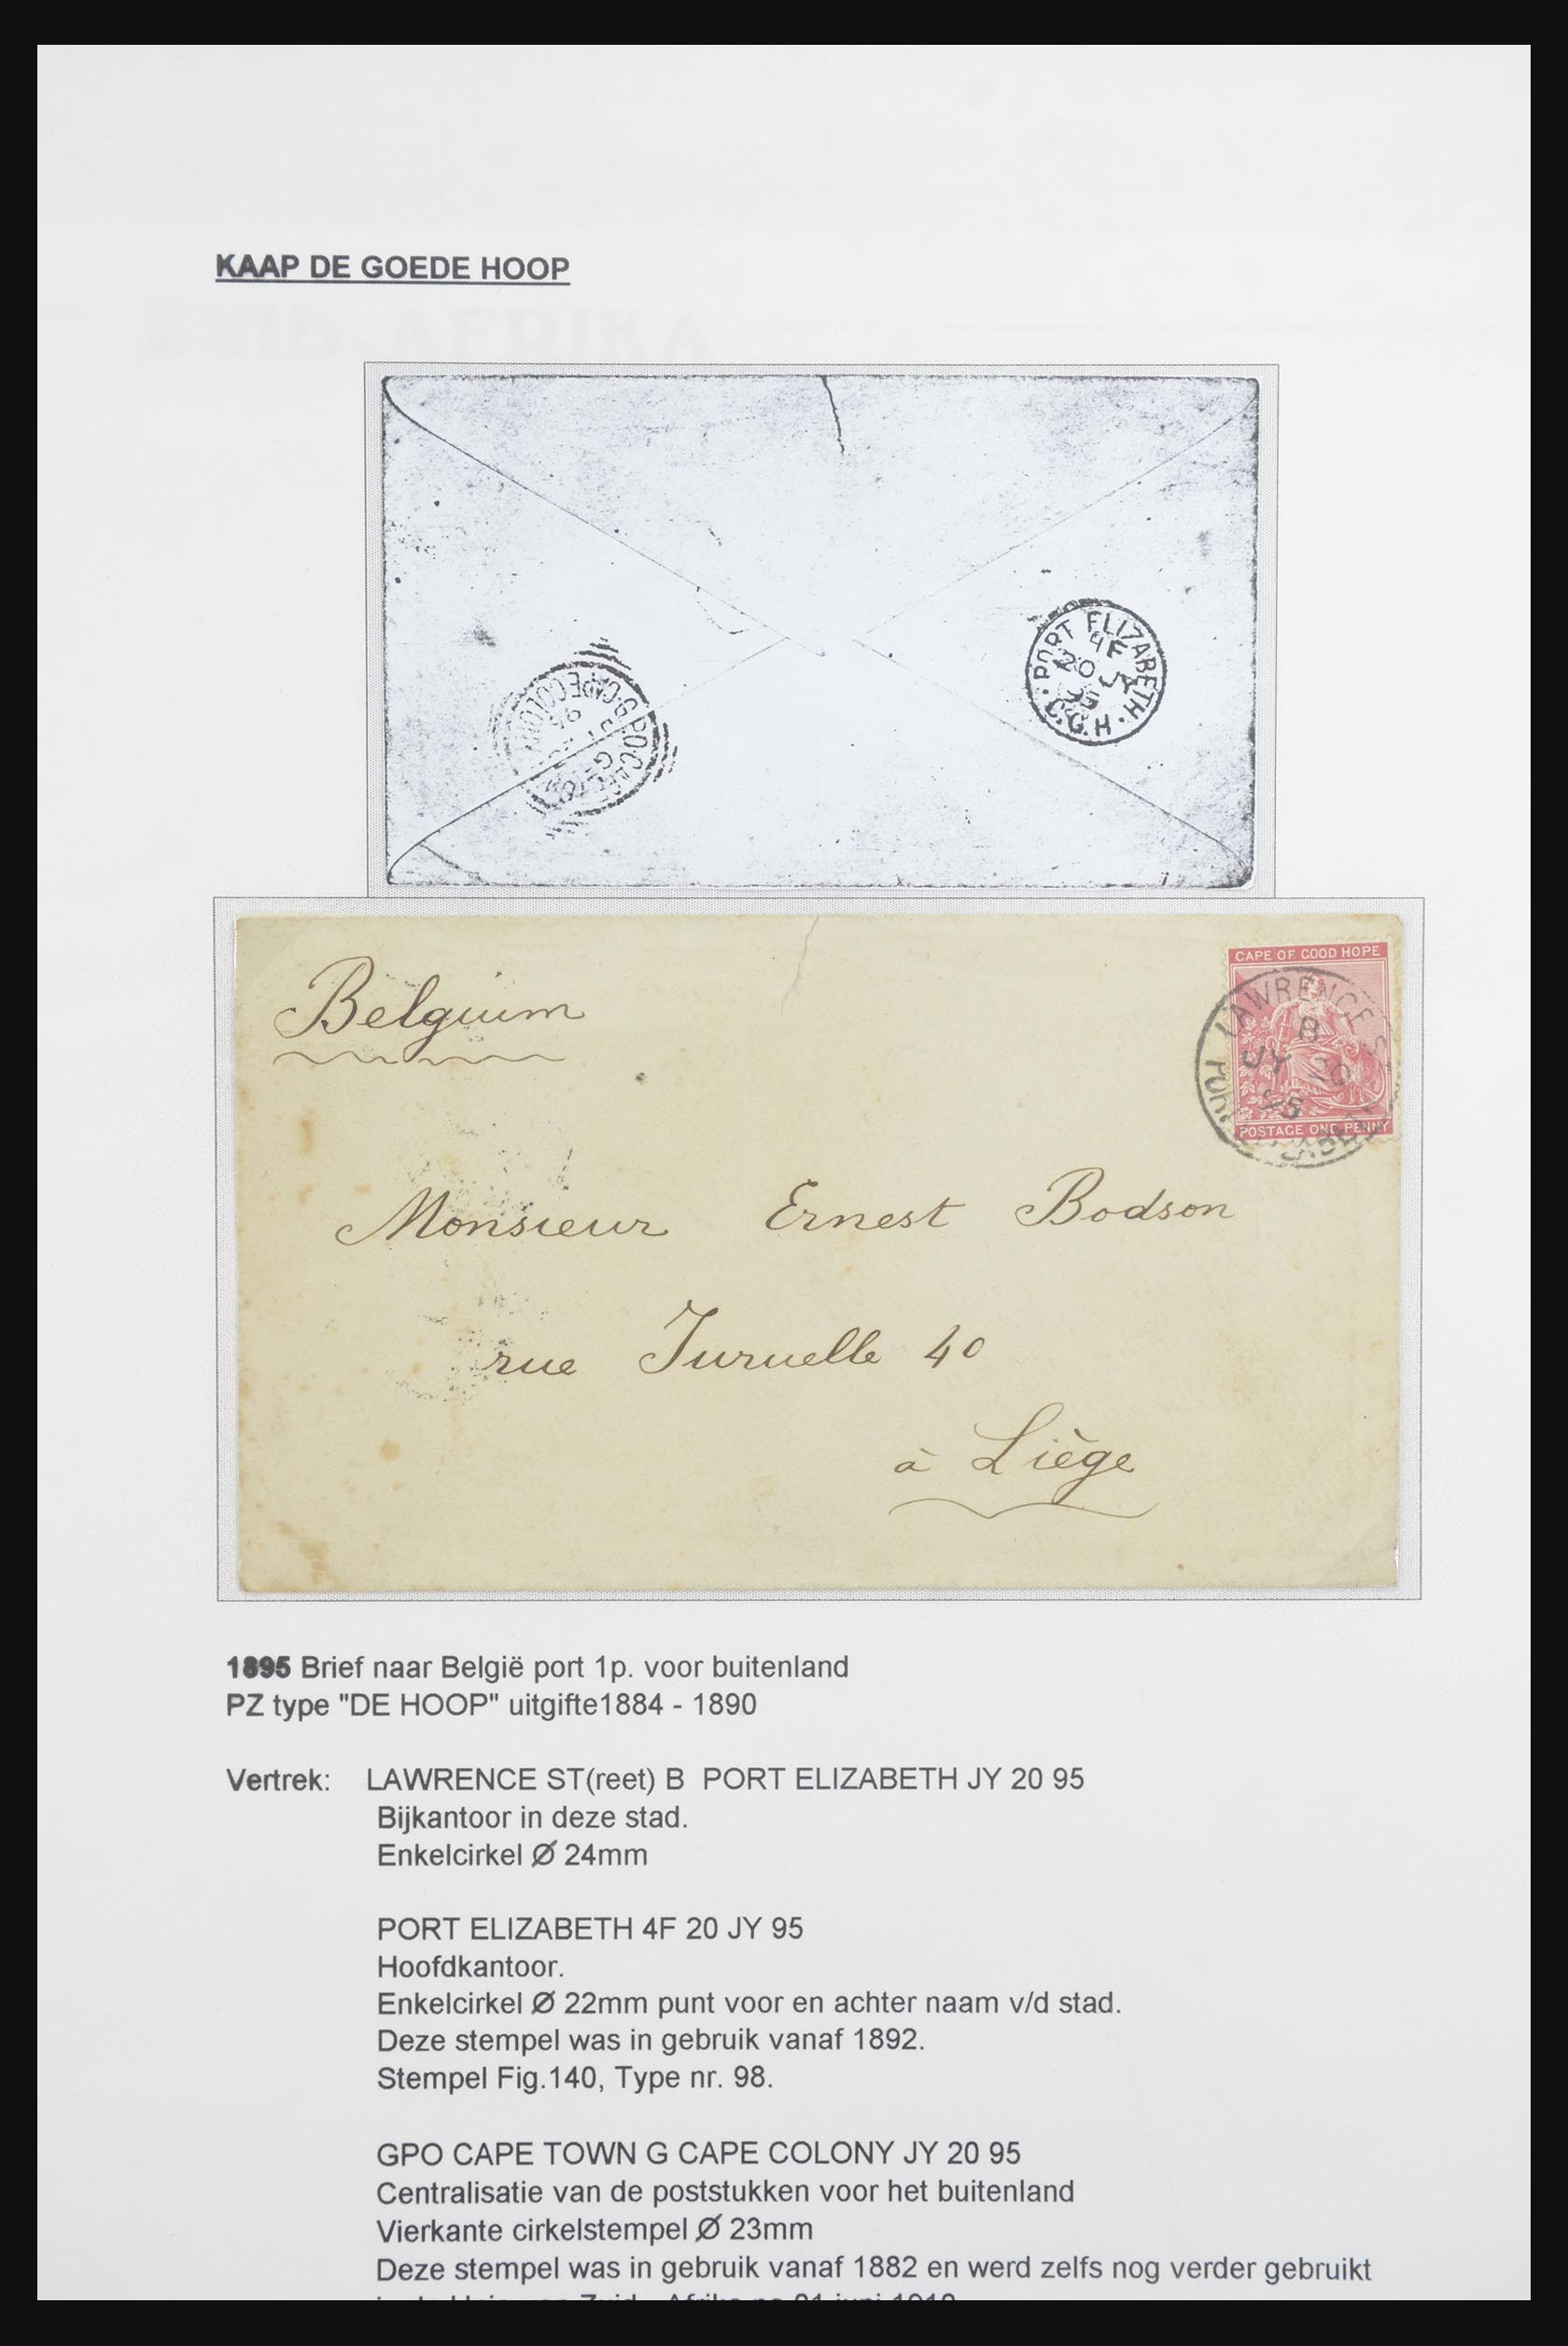 KAAP DE GOEDE HOOP
PORT ELIZABETH
4F
20 JY
95
C.G.H
G.P.O. CAPE TOWN
G
CAPE COLONY
Belguim
CAPE OF GOOD HOPE
LAWRENCE S
B
JY 20
95
POSTAGE ONE PENNY
Monsieur Ernest Bodson
rue Juruelle 40
à Liège
1895 Brief naar België port 1p. voor buitenland
PZ type "DE HOOP" uitgifte1884 - 1890
Vertrek: LAWRENCE ST(reet) B PORT ELIZABETH JY 20 95
Bijkantoor in deze stad.
Enkelcirkel Ø 24mm
PORT ELIZABETH 4F 20 JY 95
Hoofdkantoor.
Enkelcirkel Ø 22mm punt voor en achter naam v/d stad.
Deze stempel was in gebruik vanaf 1892.
Stempel Fig.140, Type nr. 98.
GPO CAPE TOWN G CAPE COLONY JY 20 95
Centralisatie van de poststukken voor het buitenland
Vierkante cirkelstempel Ø 23mm
Deze stempel was in gebruik vanaf 1882 en werd zelfs nog verder gebruikt